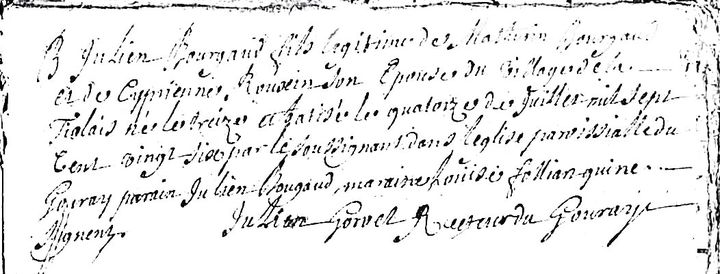 B Julien Bourgaud fils legitime de Mathurin Bourgaud
et de Cyprienne Rouxin son Epouse du village de la
Tiolais né le treize et batisé le quatorze de Juillet mil sept
Cent vingt six par le soussignant dans l'eglise paroissialle du
Gouray parain Julien Bougaud, maraine Louise follian qui ne
signent. Jullien Gorvel Recteur du Gouray